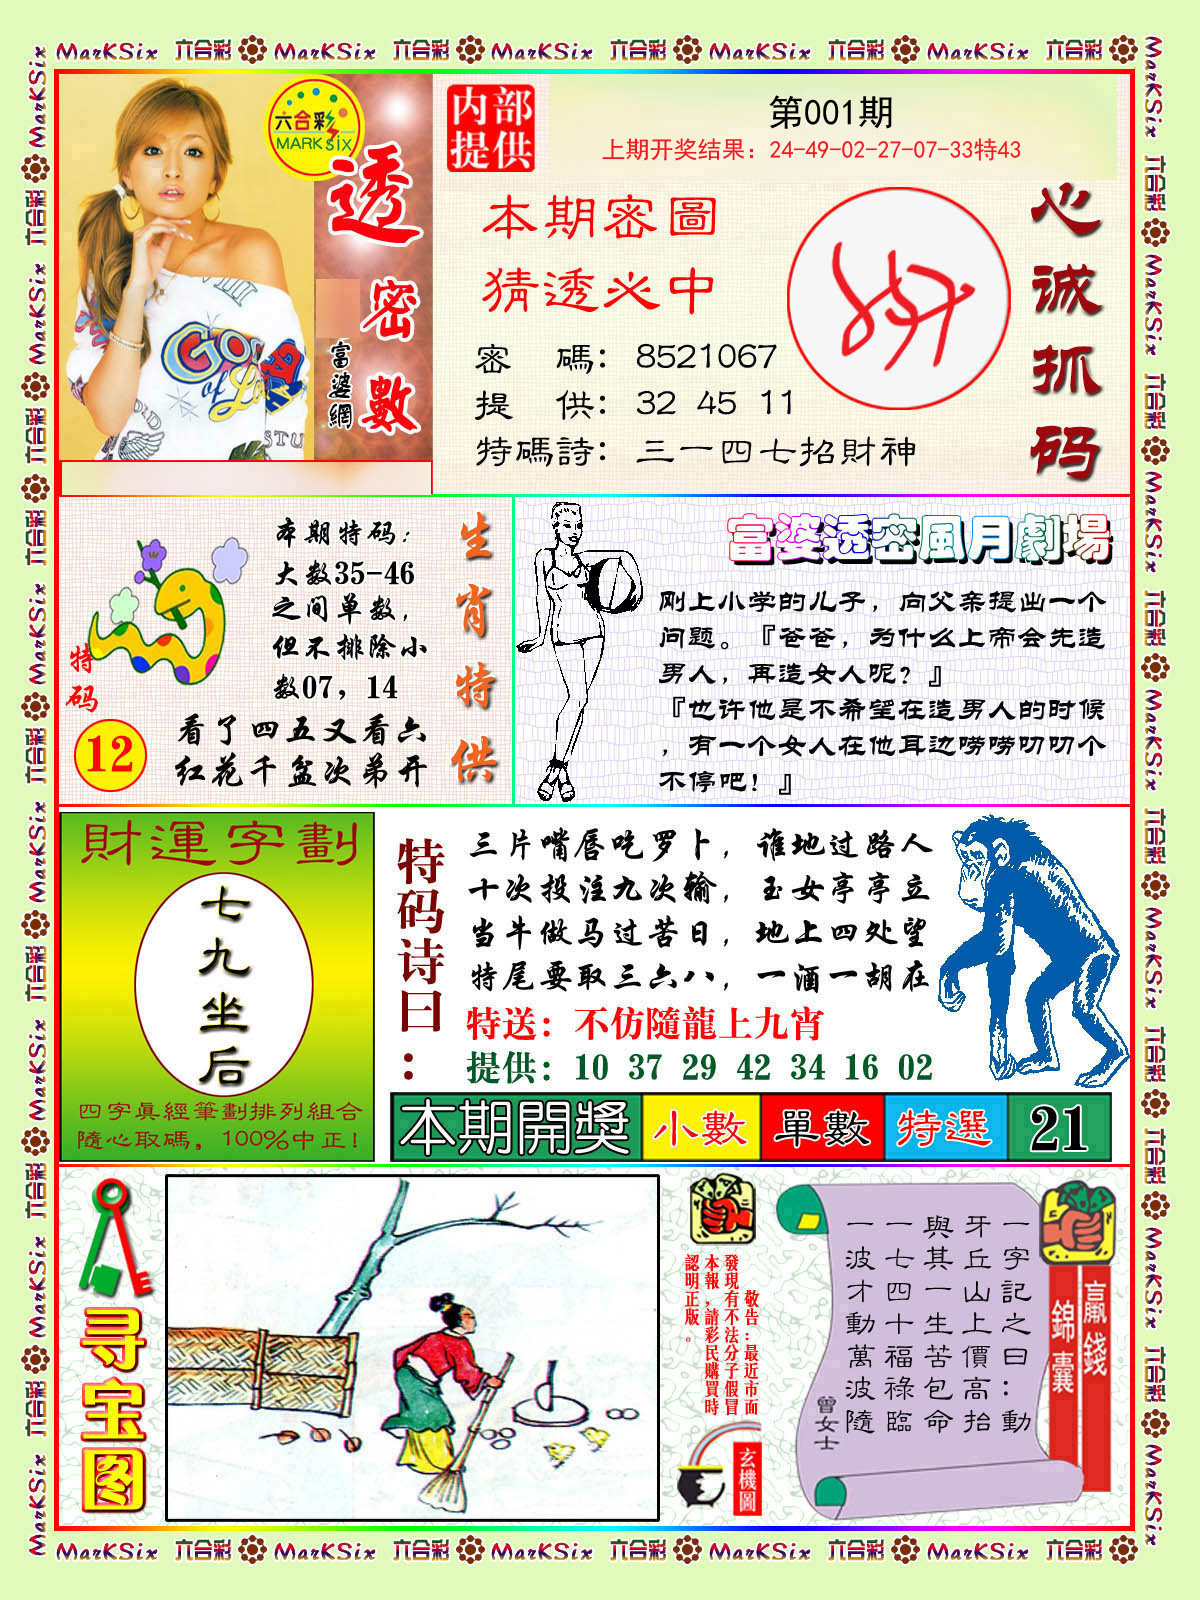 MarKSix 六合彩 MarKSix 六合彩 MarKSix 六合彩 MarKSix 六合彩 MarKSix 六合彩
六合彩
MARK SIX
透密數
富婆網
内部
提供
第001期
上期开奖结果：24-49-02-27-07-33特43
本期密圖
猜透必中
密　碼：8521067
提　供：32 45 11
特碼詩：三一四七招財神
心诚抓码
特码
12
本期特码：
大数35-46
之间单数，
但不排除小
数07，14
看了四五又看六
红花千盆次弟开
生肖特供
富婆透密風月劇場
刚上小学的儿子，向父亲提出一个
问题。『爸爸，为什么上帝会先造
男人，再造女人呢？』
『也许他是不希望在造男人的时候
，有一个女人在他耳边唠唠叨叨个
不停吧！』
財運字劃
七九坐后
四字眞經筆劃排列組合
隨心取碼，100%中正！
特码诗曰：
三片嘴唇吃罗卜，谁地过路人
十次投注九次输，玉女亭亭立
当牛做马过苦日，地上四处望
特尾要取三六八，一酒一胡在
特送：不仿隨龍上九宵
提供：10 37 29 42 34 16 02
本期開獎 小數 單數 特選 21
寻宝图
敬告：最近市面
發現有不法分子假冒
本報，請彩民購買時
認明正版。
玄機圖
一字記之曰：動
牙丘山上價高抬
與其一生苦包命
一七四十福祿臨
一波才動萬波隨
曾女士
贏錢
錦囊
MarKSix 六合彩 MarKSix 六合彩 MarKSix 六合彩 MarKSix 六合彩 MarKSix 六合彩